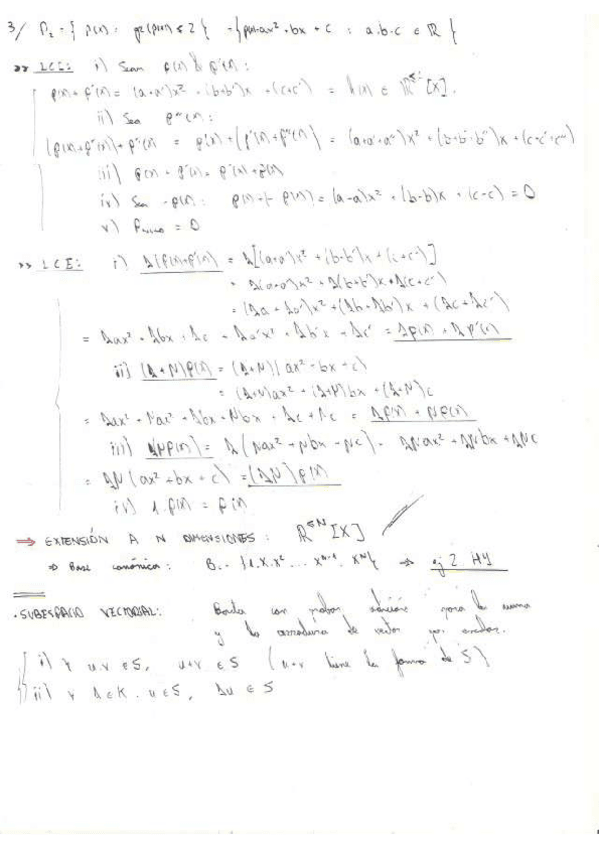 3/ P₂ = { p(x) : gr(p(x)) ≤ 2 } = { p(x) = ax² + bx + c : a, b, c ∈ ℝ }
>> LCI: i) Sean p(x) & p'(x) :
p(x) + p'(x) = (a+a')x² + (b+b')x + (c+c') = ∈ ℝ [X].
ii) Sea p''(x) :
(p(x)+p'(x)) + p''(x) = p(x) + (p'(x)+p''(x)) = (a+a'+a'')x² + (b+b'+b'')x + (c+c'+c'')
iii) p(x) + p'(x) = p'(x) + p(x)
iv) Sea -p(x) : p(x) + (-p(x)) = (a-a)x² + (b-b)x + (c-c) = 0
v) = 0
>> LCE: i) λ(p(x)+p'(x)) = λ[(a+a')x² + (b+b')x + (c+c')]
= λ(a+a')x² + λ(b+b')x + λ(c+c')
= (λa + λa')x² + (λb+λb')x + (λc + λc')
= λax² + λbx + λc + λa'x² + λb'x + λc' = λp(x) + λp'(x)
ii) (λ+μ)p(x) = (λ+μ)(ax² + bx + c)
= (λ+μ)ax² + (λ+μ)bx + (λ+μ)c
= λax² + μax² + λbx + μbx + λc + μc = λp(x) + μp(x)
iii) λ(μp(x)) = λ(μax² + μbx + μc) = λμax² + λμbx + λμc
= λμ(ax² + bx + c) = (λμ)p(x)
iv) 1·p(x) = p(x)
⇒ EXTENSIÓN A N DIMENSIONES: ℝ≤N [X]
⇒ Base canónica: B = {1, X, X², ... Xⁿ⁻¹, Xᴺ} ⇒ ej 2. H4
· SUBESPACIO VECTORIAL: Basta con probar para la suma
y la de vector por escalar.
i) ∀ u, v ∈ S, u+v ∈ S (u+v tiene la forma de S)
ii) ∀ λ ∈ K, u ∈ S, λu ∈ S